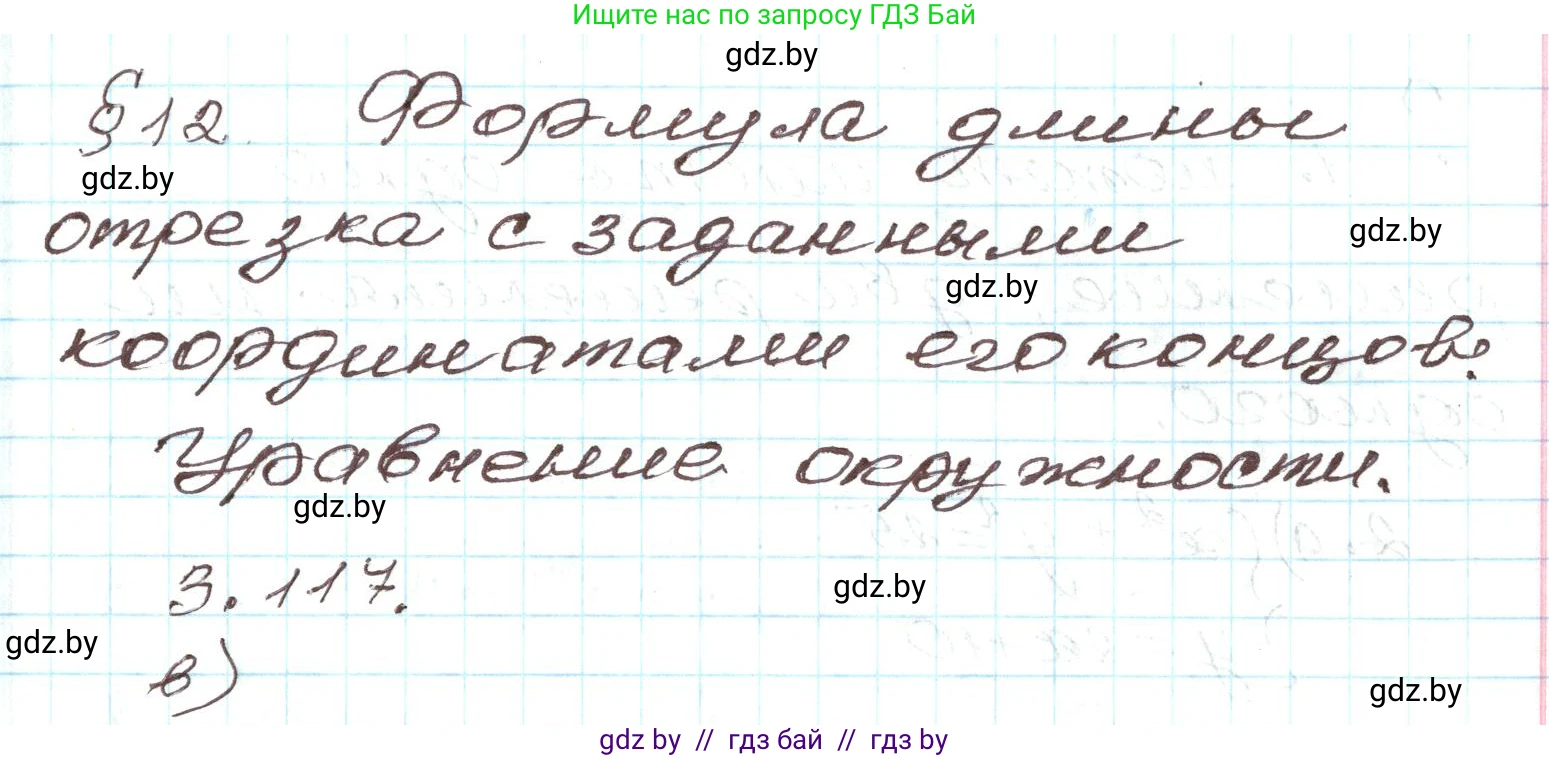 Ищите нас по запросу ГДЗ Бай
gdz.by
§12. Формула длины
gdz.by
отрезка с заданными
gdz.by
gdz.by
координатами его концов.
Уравнение окружности.
gdz.by
3.117.
gdz.by
gdz.by
в)
gdz.by
gdz by // гдз бай // гдз by